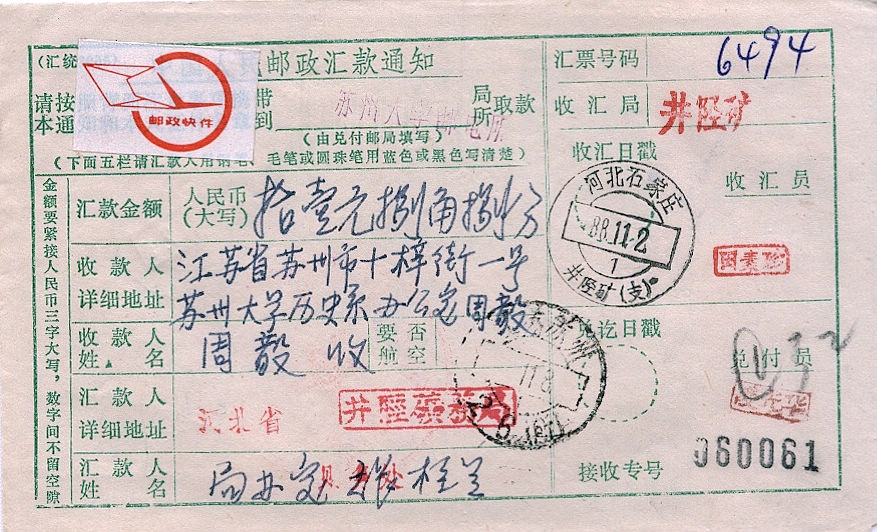 (汇统
邮政汇款通知
邮政快件
请按 带 局 取款
本通 到 苏州大学邮电所 所
(由兑付邮局填写)
(下面五栏请汇款人用钢笔、毛笔或圆珠笔用蓝色或黑色写清楚)
金额要紧接人民币三字大写,数字间不留空隙
汇款金额 人民币(大写) 拾壹元捌角捌分
收款人详细地址 江苏省苏州市十梓街一号
苏州大学历史系办公室周毅
收款人姓名 周毅收 要否航空
汇款人详细地址 河北省 井陉矿务局
汇款人姓名 局办室
汇票号码 6494
收汇局 井陉矿
收汇日戳 收汇员
河北石家庄
88.11.2
1
井陉矿(支)
兑讫日戳
兑付员
苏州
11.8
接收专号 060061